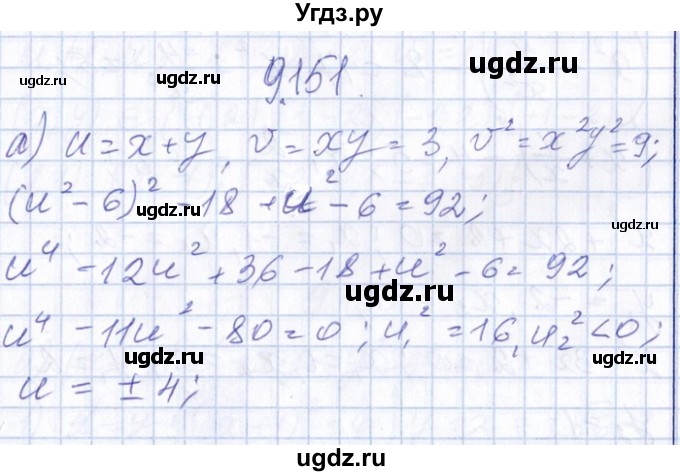 Угдз.ру
ugdz.ru ugdz.ru 9.151. ugdz.ru
а) u = x + y, v = xy = 3, v² = x²y² = 9;
(u² - 6)² - 18 + u² - 6 = 92;
ugdz.ru ugdz.ru
u⁴ - 12u² + 36 - 18 + u² - 6 = 92;
ugdz.ru
u⁴ - 11u² - 80 = 0; u₁² = 16, u₂² < 0;
ugdz.ru ugdz.ru
u = ± 4;
ugdz.ru